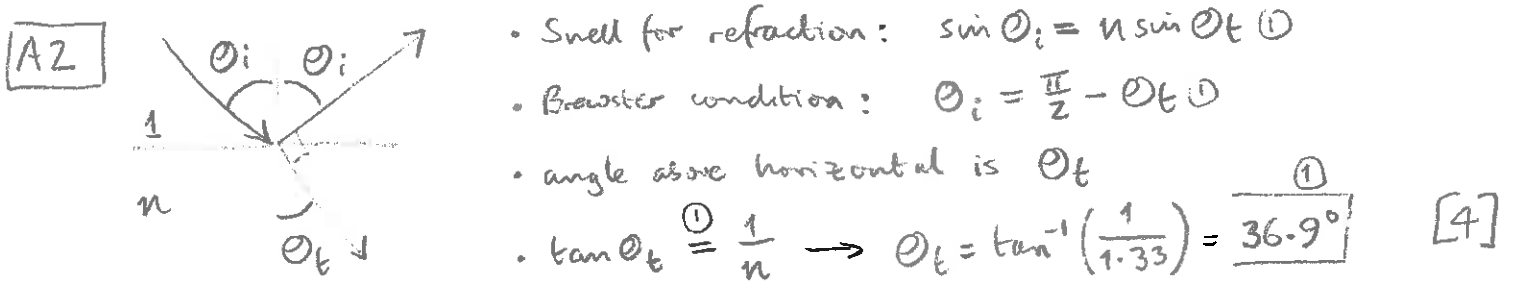 A2
θi θi
1
n
θt
• Snell for refraction: sin θi = n sin θt ①
• Brewster condition: θi = π/2 − θt ①
• angle above horizontal is θt
• tan θt =① 1/n → θt = tan⁻¹(1/1.33) = 36.9° ① [4]